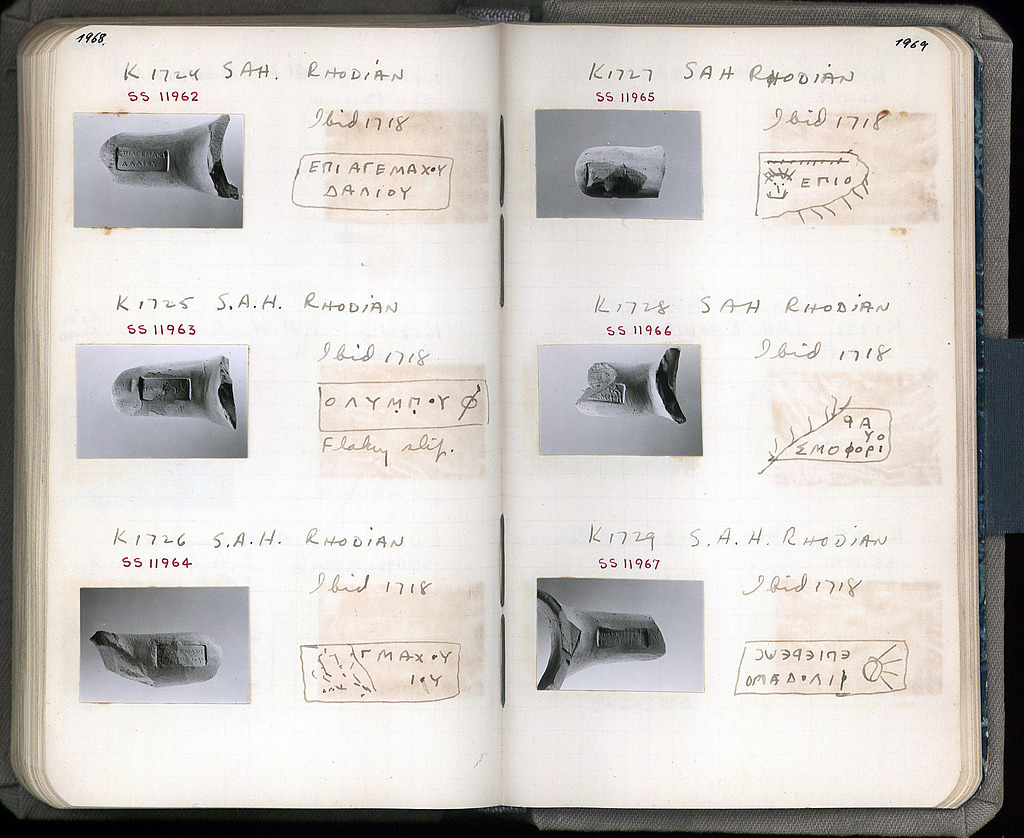 1968.
K 1724 SAH. RHODIAN
SS 11962
Ibid 1718
ΕΠΙ ΑΓΕΜΑΧΟΥ
ΔΑΛΙΟΥ
K 1725 S.A.H. RHODIAN
SS 11963
Ibid 1718
ΟΛΥΜΠΟΥ
Flaky slip.
K 1726 S.A.H. RHODIAN
SS 11964
Ibid 1718
ΜΑΧΟΥ
ΙΟΥ
1969
K 1727 SAH RHODIAN
SS 11965
Ibid 1718
ΕΠΙΟ
K 1728 SAH RHODIAN
SS 11966
Ibid 1718
ΘΑ
ΥΟ
ΣΜΟΦΟΡΙ
K 1729 S.A.H. RHODIAN
SS 11967
Ibid 1718